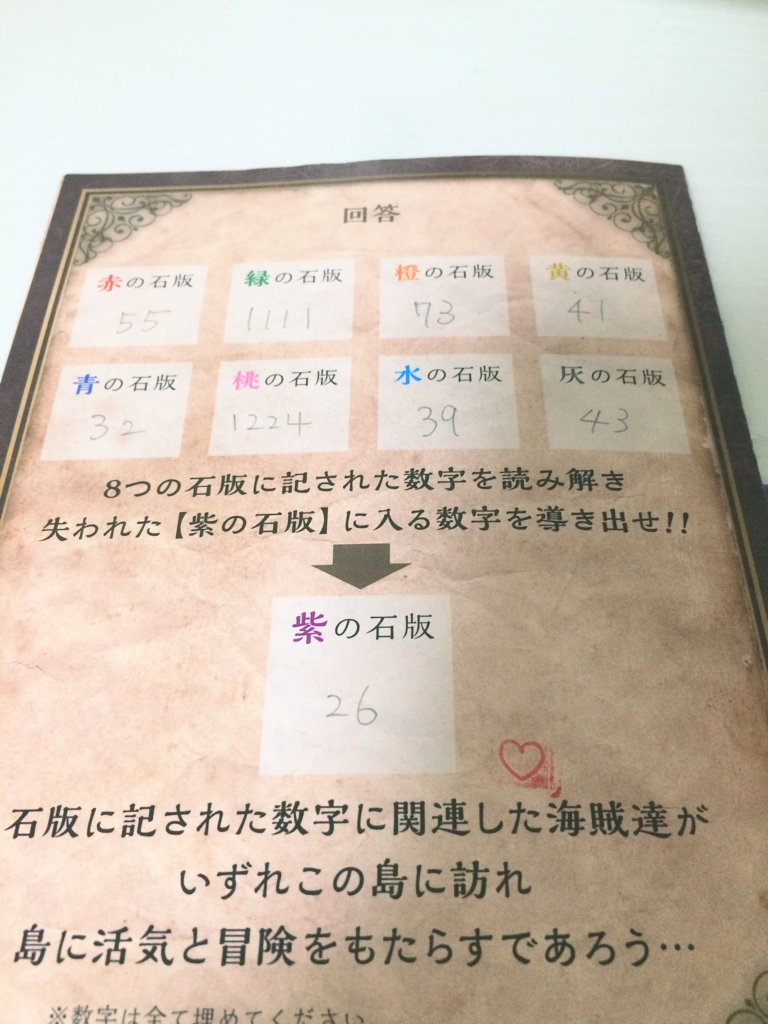 回答
赤の石版 緑の石版 橙の石版 黄の石版
55 1111 73 41
青の石版 桃の石版 水の石版 灰の石版
32 1224 39 43
8つの石版に記された数字を読み解き
失われた【紫の石版】に入る数字を導き出せ!!
紫の石版
26
石版に記された数字に関連した海賊達が
いずれこの島に訪れ
島に活気と冒険をもたらすであろう…
※数字は全て埋めてください